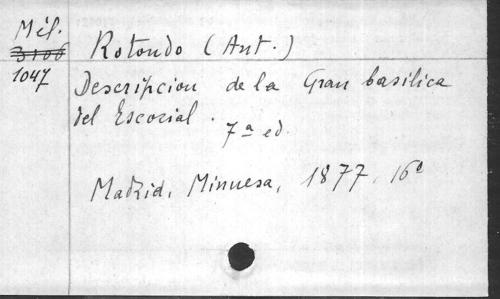 Mél.
3106
1047
Rotondo (Ant.)
Descripcion de la Gran basilica
del Escorial.
7ª ed.
Madrid, Minuesa, 1877, 16º